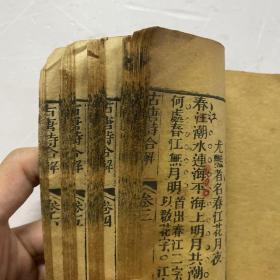 尤無者名春江花月夜
春江潮水連海平海上明月共潮
何處春江無月明
首出春江二字
以致花字江
古唐詩合解
卷三
古唐詩合解
卷四
古唐詩合解
卷五
古唐詩合解
卷六